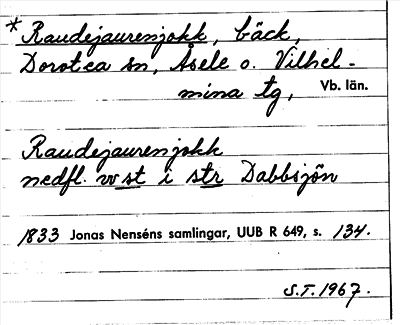 * Raudejaurenjokk, bäck,
Dorotea sn, Åsele o. Vilhel-
mina tg, Vb. län.
Raudejaurenjokk
nedfl. v st i str Dabbsjön
1833 Jonas Nenséns samlingar, UUB R 649, s. 134.
S.T. 1967.